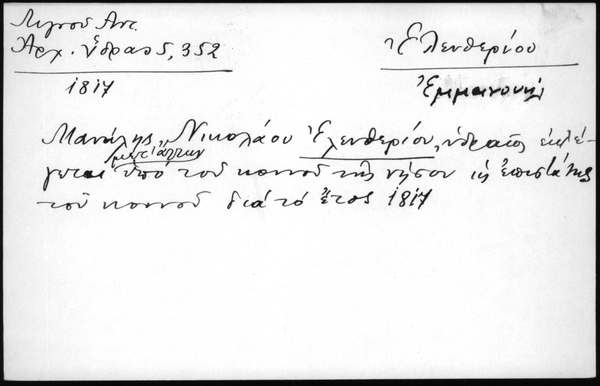 Λιγνοῦ Ἀντ.
Ἀρχ. Ὕδρας 5, 352
1817
Ἐλευθερίου
Ἐμμανουήλ
Μανώλης Νικολάου Ἐλευθερίου, ὑδραῖος ἐκλέ-
μετ' ἄλλων
γεται ὑπό τοῦ κοινοῦ τῆς νήσου ὡς ἐπιστάτης
τοῦ κοινοῦ διά τό ἔτος 1817